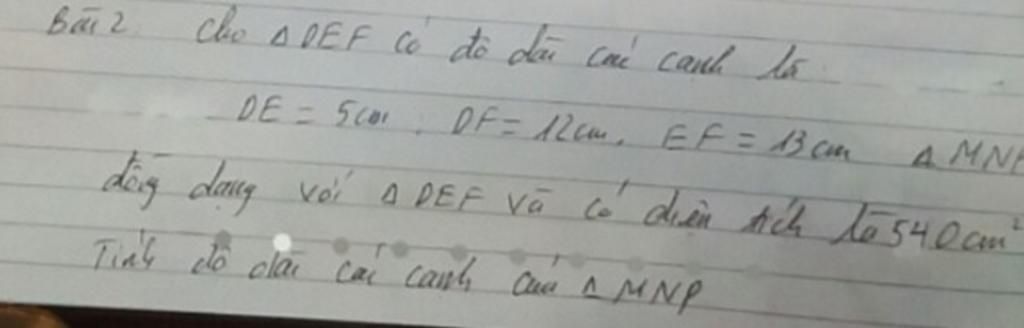 Bài 2. Cho △DEF có độ dài các cạnh là
DE = 5cm, DF = 12cm, EF = 13cm △MNP
đồng dạng với △DEF và có diện tích là 540cm²
Tính độ dài các cạnh của △MNP